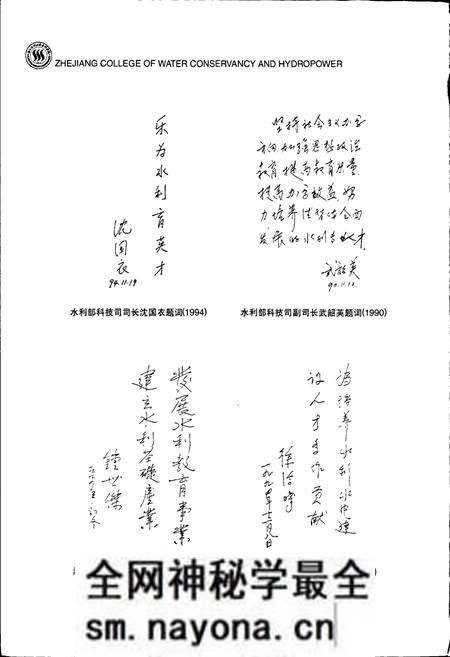 ZHEJIANG COLLEGE OF WATER CONSERVANCY AND HYDROPOWER
乐为水利育英才
沈国衣
94.11.19
水利部科技司司长沈国衣题词(1994)
坚持社会主义办学
方向加强思想政治
教育提高教育质量
提高办学效益努
力培养德智体全面
发展的水利专业人才
武韶英
90.11.12
水利部科技司副司长武韶英题词(1990)
发展水利教育事业
建立水利基础产业
钟世杰
为培养水利水电建
设人才多作贡献
徐洽时
一九九〇年十二月八日
全网神秘学最全
sm.nayona.cn